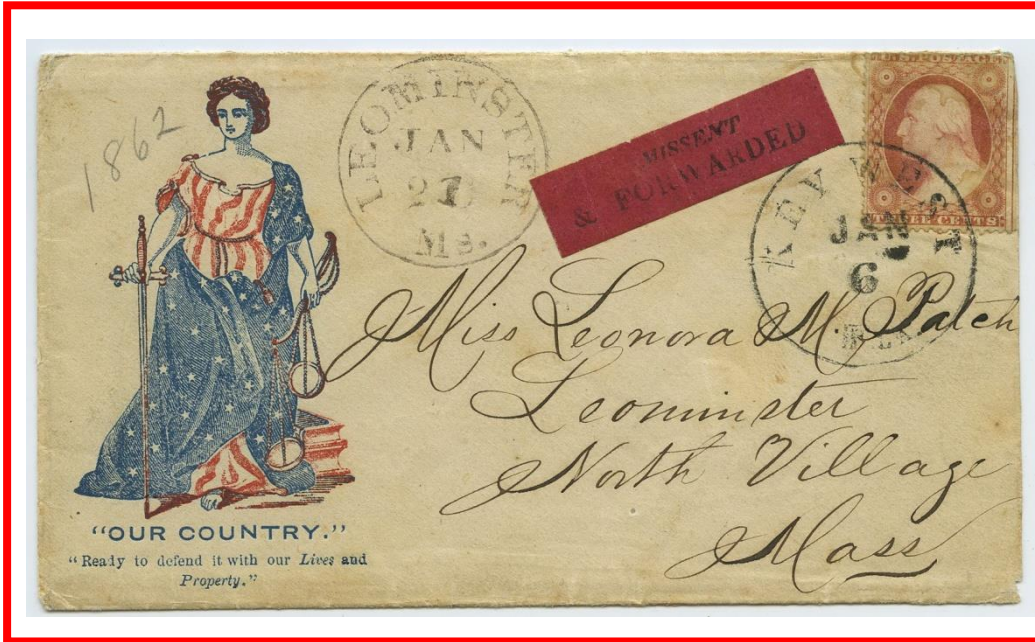 1862
LEOMINSTER
JAN
27
Ms.
MISSENT
& FORWARDED
KEY WEST
JAN
6
THREE CENTS.
Miss Leonora M. Patch
Leominster
North Village
Mass
"OUR COUNTRY."
"Ready to defend it with our Lives and
Property."